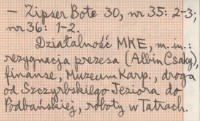 - Zipser Bote 30, nr 35: 2-3;
nr 36: 1-2.
Działalność MKE, m.in.:
rezygnacja prezesa (Albin Csáky),
finanse, Muzeum Karp., droga
od Szczyrbskiego Jeziora do
Podbańskiej, roboty w Tatrach.